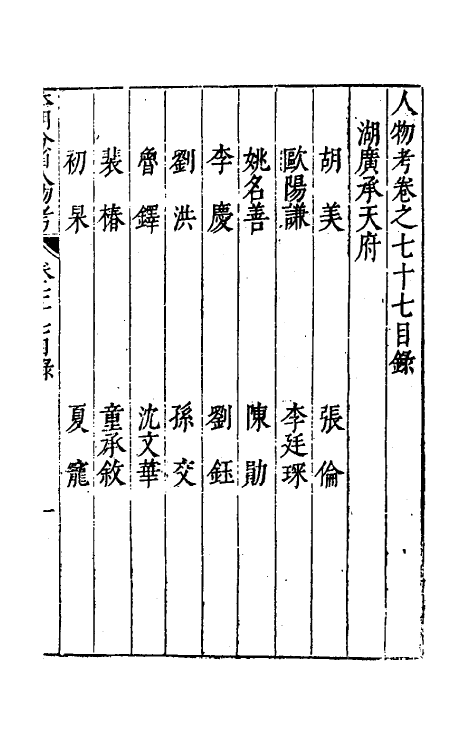 人物考卷之七十七目錄
湖廣承天府
胡美 張倫
歐陽謙 李廷琛
姚名善 陳勛
李慶 劉鈺
劉洪 孫交
魯鐸 沈文華
裴椿 童承敘
初杲 夏寵
本朝分省人物考 卷之七十七目錄 一